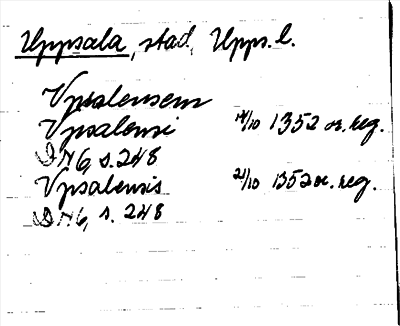 Uppsala, stad, Upps. l.
Vpsalensem
Vpsalensi 14/10 1352 or. reg.
DN6, s. 248
Vpsalensis 21/10 1352 or. reg.
DN6, s. 248